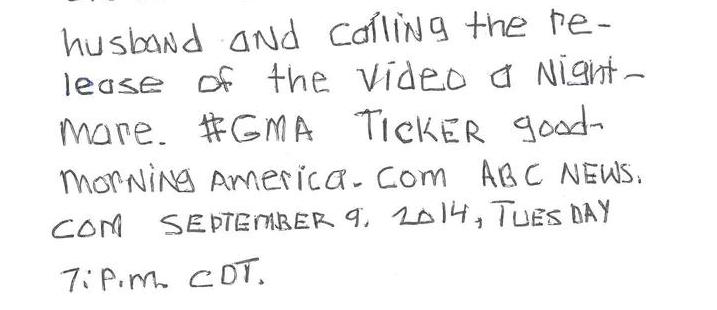 husband and calling the re-
lease of the video a Night-
mare. #GMA TICKER good-
morning America. Com ABC NEWS.
COM SEPTEMBER 9, 2014, TUESDAY
7: P.m. CDT.